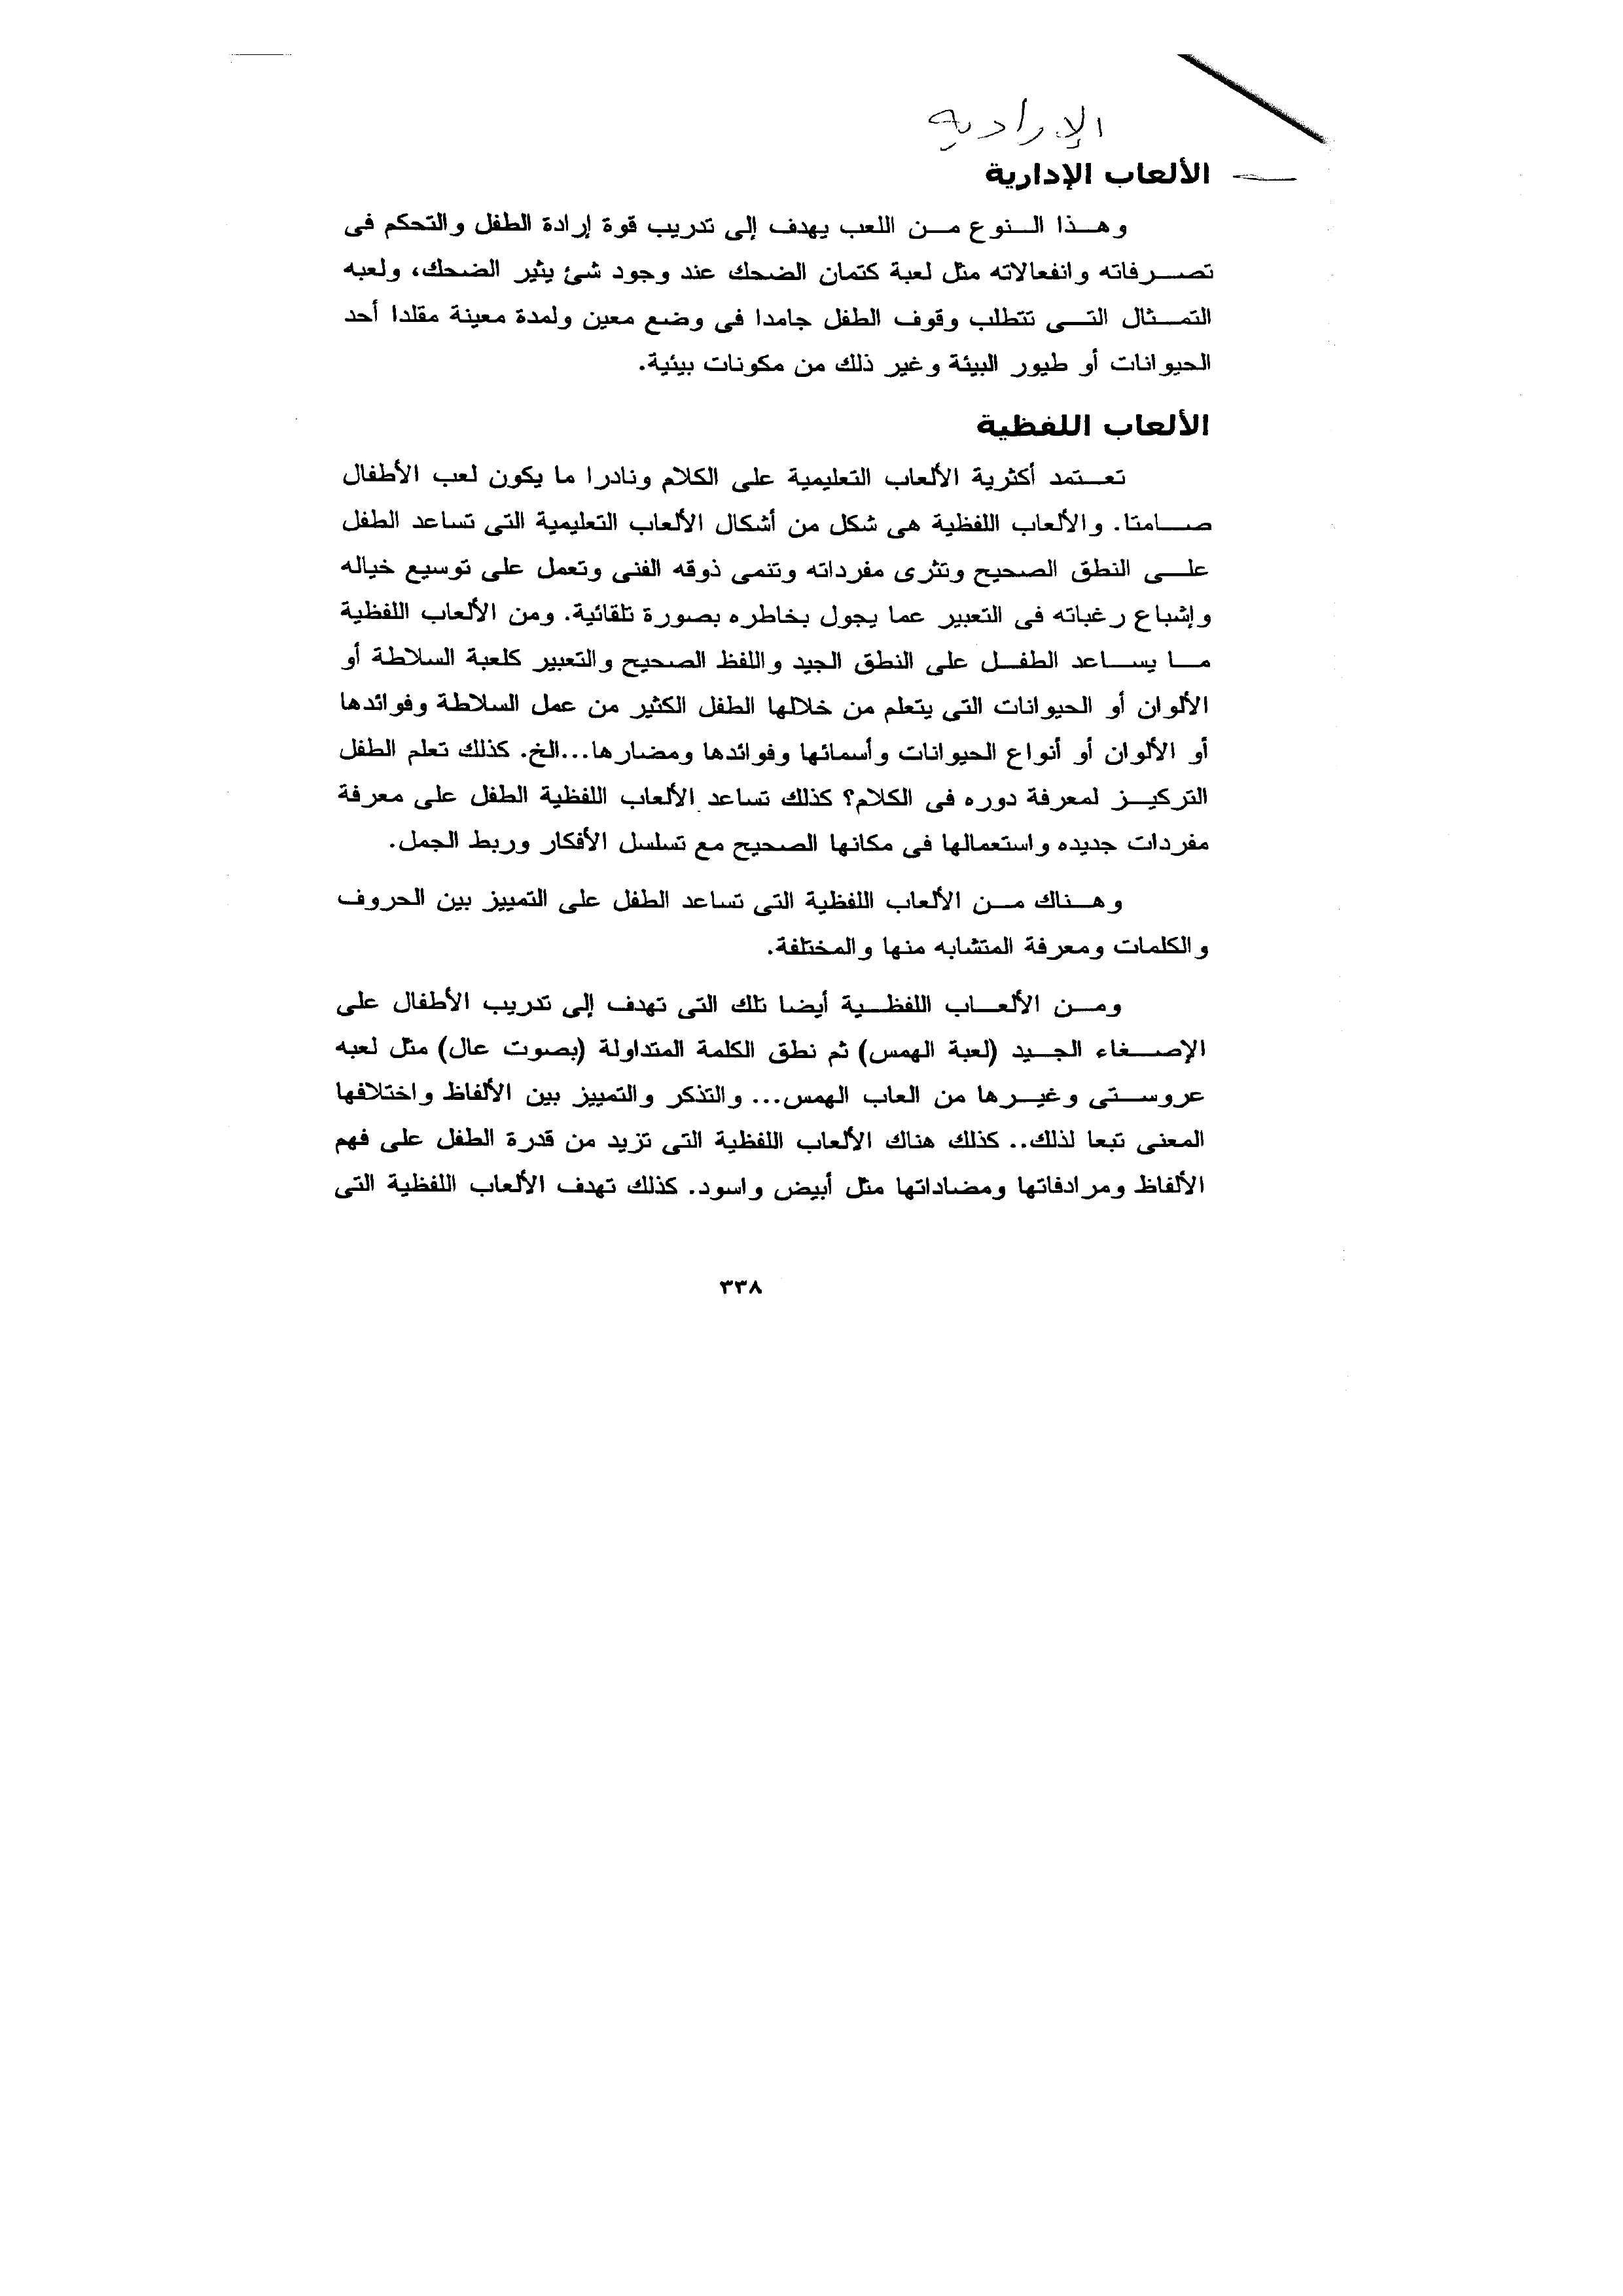 الإرادية
الألعاب الإدارية
وهذا النوع من اللعب يهدف إلى تدريب قوة إرادة الطفل والتحكم فى
تصرفاته وانفعالاته مثل لعبة كتمان الضحك عند وجود شئ يثير الضحك، ولعبه
التمثال التى تتطلب وقوف الطفل جامدا فى وضع معين ولمدة معينة مقلدا أحد
الحيوانات أو طيور البيئة وغير ذلك من مكونات بيئية.
الألعاب اللفظية
تعتمد أكثرية الألعاب التعليمية على الكلام ونادرا ما يكون لعب الأطفال
صامتا. والألعاب اللفظية هى شكل من أشكال الألعاب التعليمية التى تساعد الطفل
على النطق الصحيح وتثرى مفرداته وتنمى ذوقه الفنى وتعمل على توسيع خياله
وإشباع رغباته فى التعبير عما يجول بخاطره بصورة تلقائية. ومن الألعاب اللفظية
ما يساعد الطفل على النطق الجيد واللفظ الصحيح والتعبير كلعبة السلاطة أو
الألوان أو الحيوانات التى يتعلم من خلالها الطفل الكثير من عمل السلاطة وفوائدها
أو الألوان أو أنواع الحيوانات وأسمائها وفوائدها ومضارها...الخ. كذلك تعلم الطفل
التركيز لمعرفة دوره فى الكلام؟ كذلك تساعد الألعاب اللفظية الطفل على معرفة
مفردات جديده واستعمالها فى مكانها الصحيح مع تسلسل الأفكار وربط الجمل.
وهناك من الألعاب اللفظية التى تساعد الطفل على التمييز بين الحروف
والكلمات ومعرفة المتشابه منها والمختلفة.
ومن الألعاب اللفظية أيضا تلك التى تهدف إلى تدريب الأطفال على
الإصغاء الجيد (لعبة الهمس) ثم نطق الكلمة المتداولة (بصوت عال) مثل لعبه
عروستى وغيرها من العاب الهمس... والتذكر والتمييز بين الألفاظ واختلافها
المعنى تبعا لذلك.. كذلك هناك الألعاب اللفظية التى تزيد من قدرة الطفل على فهم
الألفاظ ومرادفاتها ومضاداتها مثل أبيض واسود. كذلك تهدف الألعاب اللفظية التى
٣٣٨